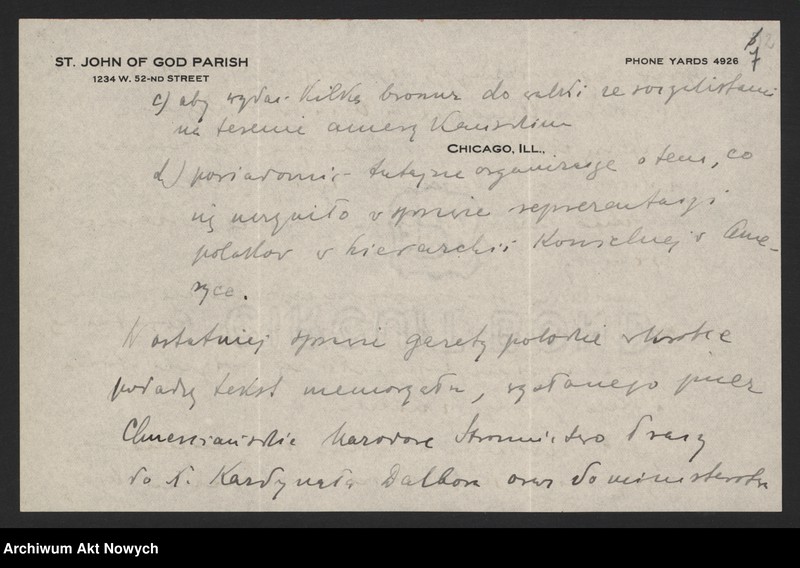 ST. JOHN OF GOD PARISH
1234 W. 52-ND STREET
PHONE YARDS 4926
7
c) aby wydać kilka broszur do walki ze socjalistami
na terenie amerykańskim
CHICAGO, ILL.,
d) powiadomić tutejsze organizacje o tem, co
się uczyniło w sprawie reprezentacji
polaków w hierarchii Kościelnej w Ame-
ryce.
W ostatniej sprawie gazety polskie wkrótce
podadzą tekst memorjału, wysłanego przez
Chrześcijańskie Narodowe Stronnictwo Pracy
do X. Kardynała Dalbora oraz do ministerstwa
Archiwum Akt Nowych